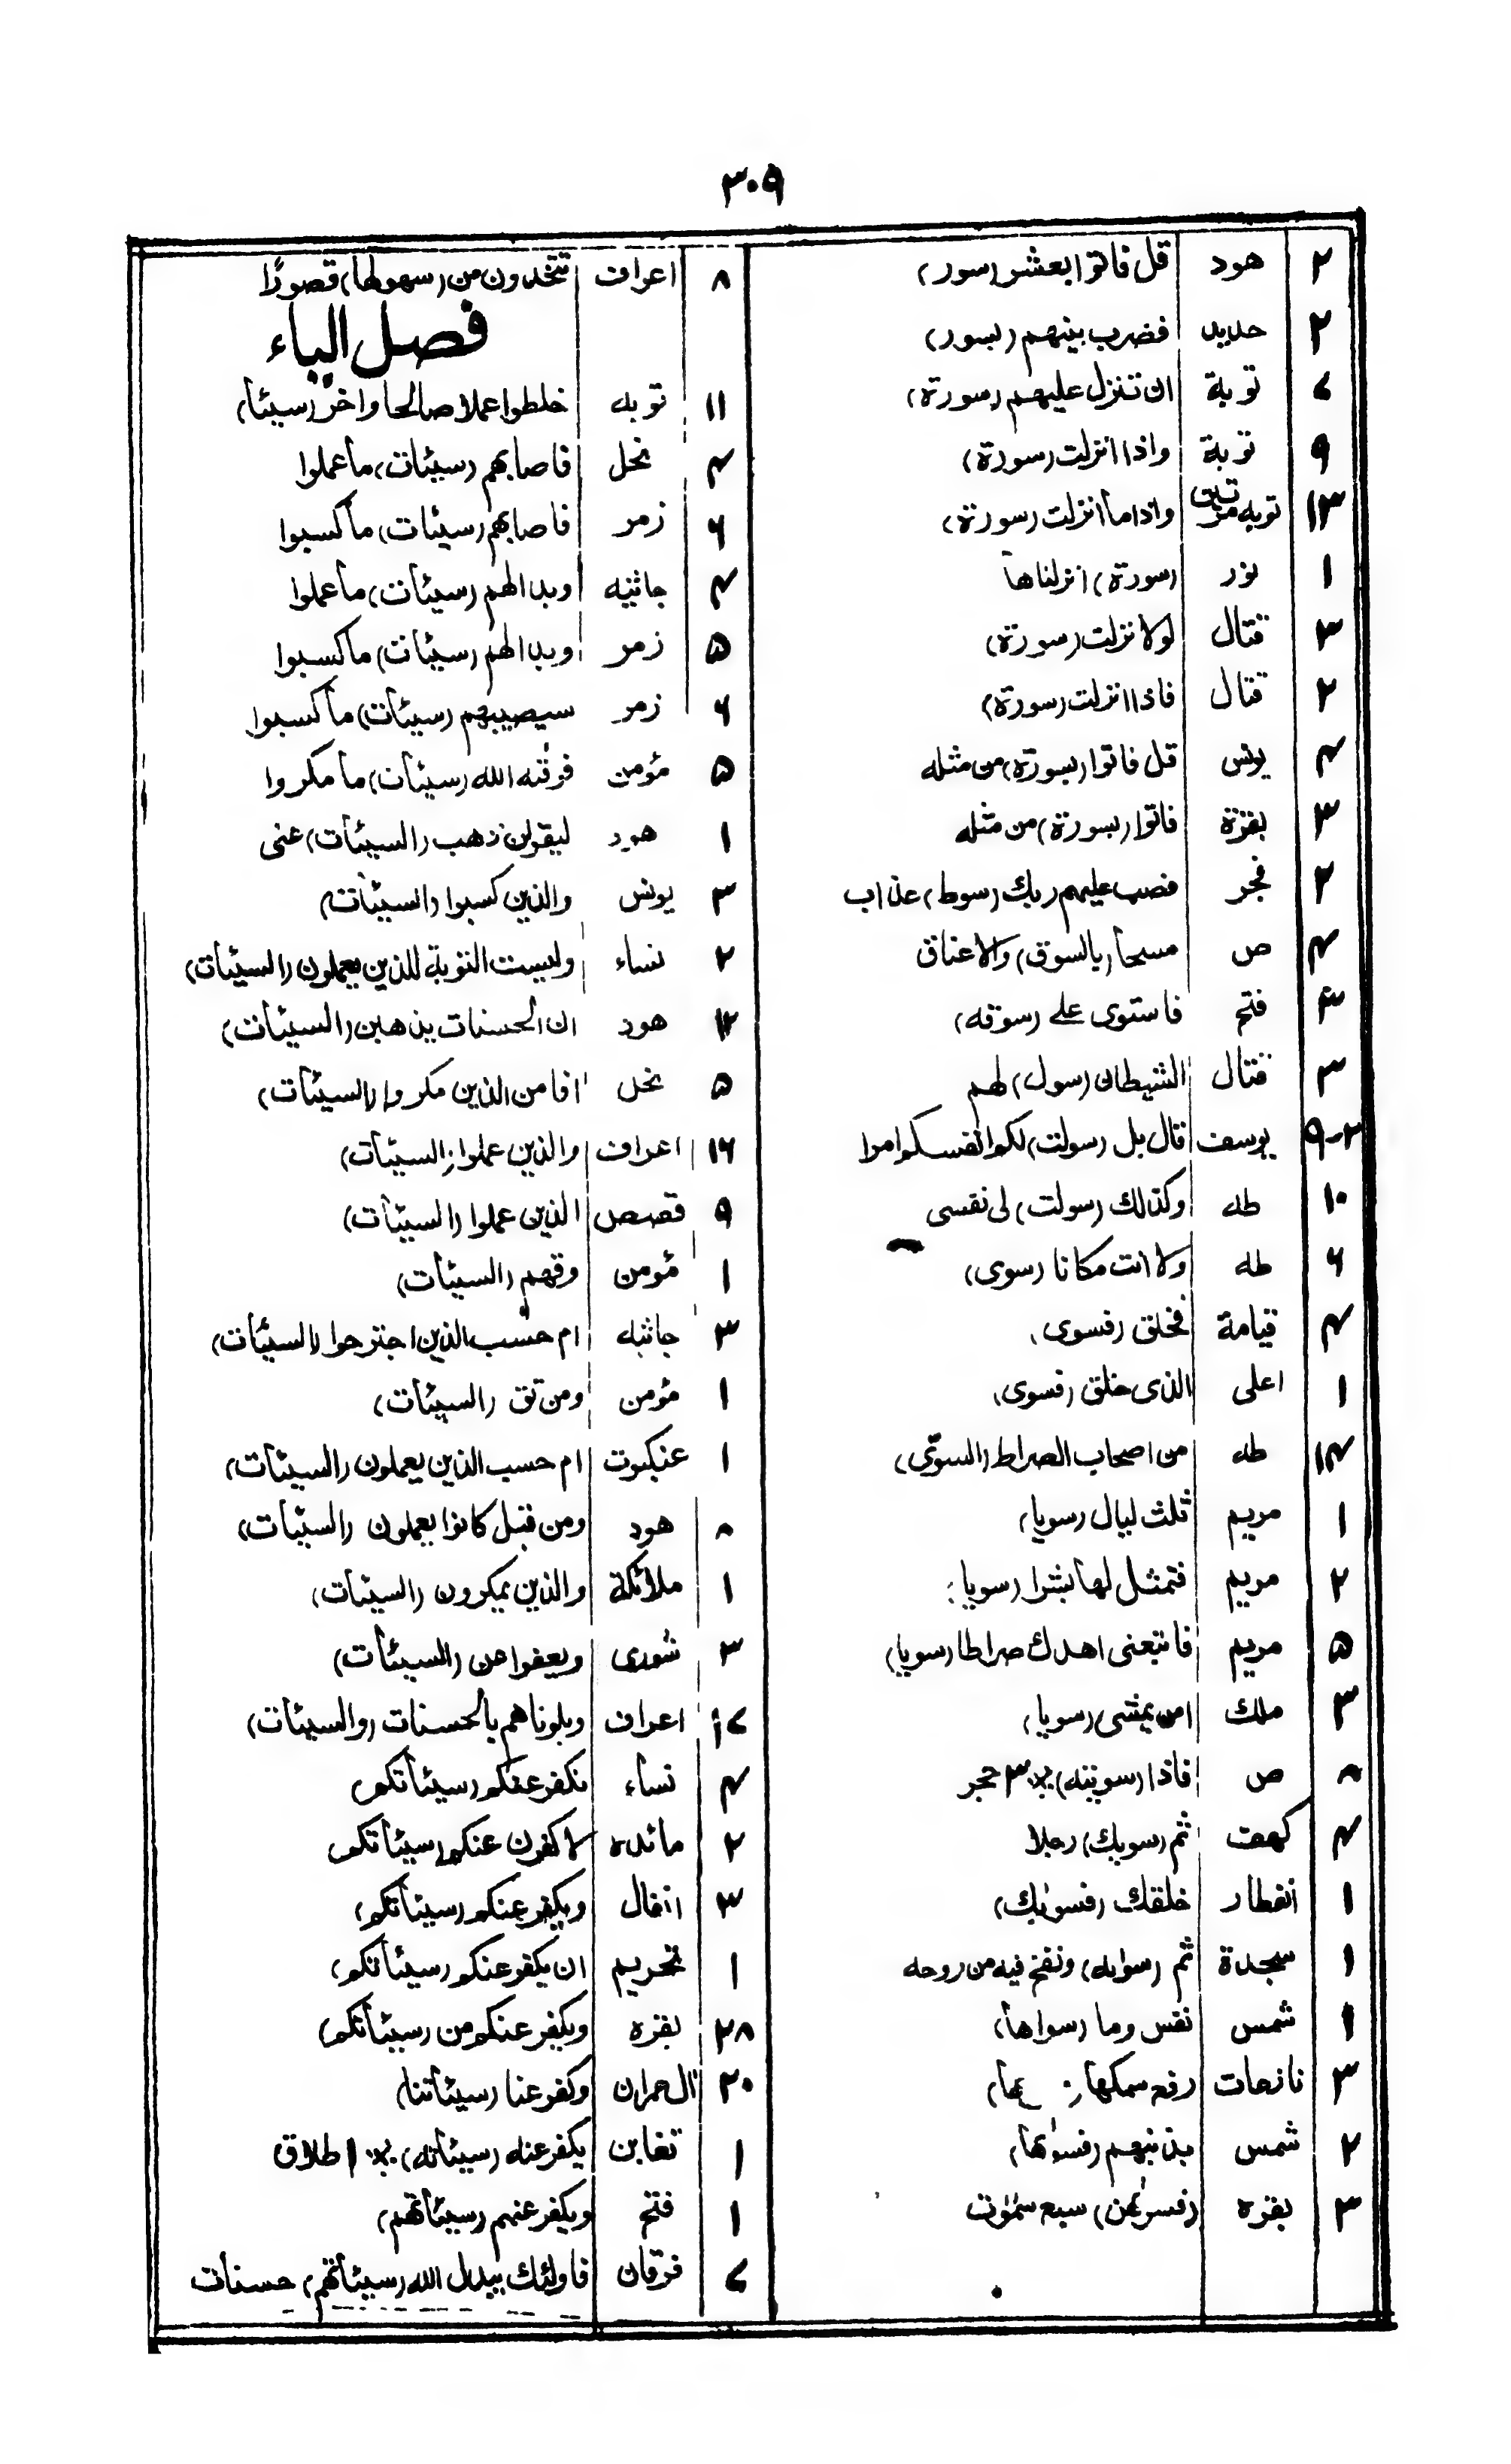 ۳۰۹
۲ هود قل فاتوا بعشر (سور)
۲ حدید فضرب بینهم (بسور)
۷ توبة ان تنزل علیهم (سورة)
۹ توبة واذا انزلت (سورة)
۱۳ توبه مرتین واذاما انزلت (سورة)
۱ نور (سورة) انزلناها
۳ قتال لولا نزلت (سورة)
۲ قتال فاذا انزلت (سورة)
۴ یونس قل فاتوا (بسورة) من مثله
۳ بقرة فاتوا (بسورة) من مثله
۲ فجر فصب علیهم ربك (سوط) عذاب
۴ ص مسحا (بالسوق) والاعناق
۴ فتح فاستوی علے (سوقه)
۳ قتال الشیطان (سول) لهم
۲-۹ یوسف قال بل (سولت) لکم انفسکم امرا
۱۰ طه وکذالك (سولت) لی نفسی
۶ طه ولا انت مکانا (سوی)
۴ قیامة فخلق (فسوی)
۱ اعلی الذی خلق (فسوی)
۱۴ طه من اصحاب الصراط (السوّی)
۱ مریم ثلث لیال (سویا)
۲ مریم فتمثل لها بشرا (سویا)
۵ مریم فاتبعنی اهدك صراطا (سویا)
۳ ملك امن یمشی (سویا)
۸ ص فاذا (سویته) ۳ حجر
۴ کهف ثم (سویك) رجلا
۱ انفطار خلقك (فسوٰیك)
۱ سجدة ثم (سوٰیه) ونفخ فیه من روحه
۱ شمس نفس وما (سواها)
۳ نازعات رفع سمکها
۲ شمس بذنبهم (فسوٰىها)
۳ بقره (فسوٰىهن) سبع سمٰوٰت
۸ اعراف تتخذون من (سهولها) قصورًا
فصل الیاء
۱۱ توبه خلطوا عملا صالحا واخر (سیئا)
۴ نحل فاصابهم (سیئات) ما عملوا
۶ زمر فاصابهم (سیئات) ما کسبوا
۴ جاثیه وبدا لهم (سیئات) ما عملوا
۵ زمر وبدا لهم (سیئات) ما کسبوا
۶ زمر سیصیبهم (سیئات) ما کسبوا
۵ مؤمن فوقٰىه الله (سیئات) ما مکروا
۱ هود لیقولن ذهب (السیئات) عنی
۳ یونس والذین کسبوا (السیئات)
۲ نساء ولیست التوبة للذین یعملون (السیئات)
۱۲ هود ان الحسنات یذهبن (السیئات)
۵ نحل افامن الذین مکروا (السیئات)
۱۶ اعراف والذین عملوا (السیئات)
۹ قصص الذین عملوا (السیئات)
۱ مؤمن وقهم (السیئات)
۳ جاثیه ام حسب الذین اجترحوا (السیئات)
۱ مؤمن ومن تق (السیئات)
۱ عنکبوت ام حسب الذین یعملون (السیئات)
۸ هود ومن قبل کانوا یعملون (السیئات)
۱ ملائکة والذین یمکرون (السیئات)
۳ شوری ویعفوا عن (السیئات)
۱۷ اعراف وبلوناهم بالحسنات (والسیئات)
۴ نساء نکفر عنکم (سیئاتکم)
۲ مائده لاکفرن عنکم (سیئاتکم)
۳ انفال ویکفر عنکم (سیئاتکم)
۱ تحریم ان یکفر عنکم (سیئاتکم)
۲۸ بقره ویکفر عنکم من (سیئاتکم)
۲۰ اٰل عمران وکفر عنا (سیئاتنا)
۱ تغابن یکفر عنه (سیئاته) ۱ طلاق
۱ فتح ویکفر عنهم (سیئاتهم)
۷ فرقان فاولئك یبدل الله (سیئاتهم) حسنات